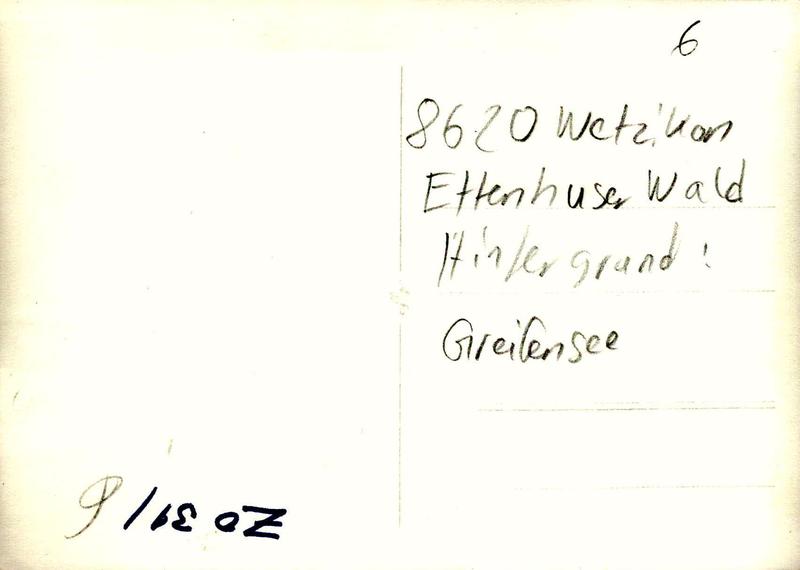 6
8620 Wetzikon
Ettenhuser Wald
Hintergrund:
Greifensee
ZO 31/